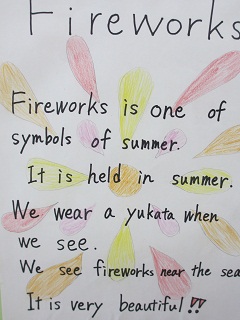 Fireworks
Fireworks is one of
symbols of summer.
It is held in summer.
We wear a yukata when
we see.
We see fireworks near the sea
It is very beautiful!!